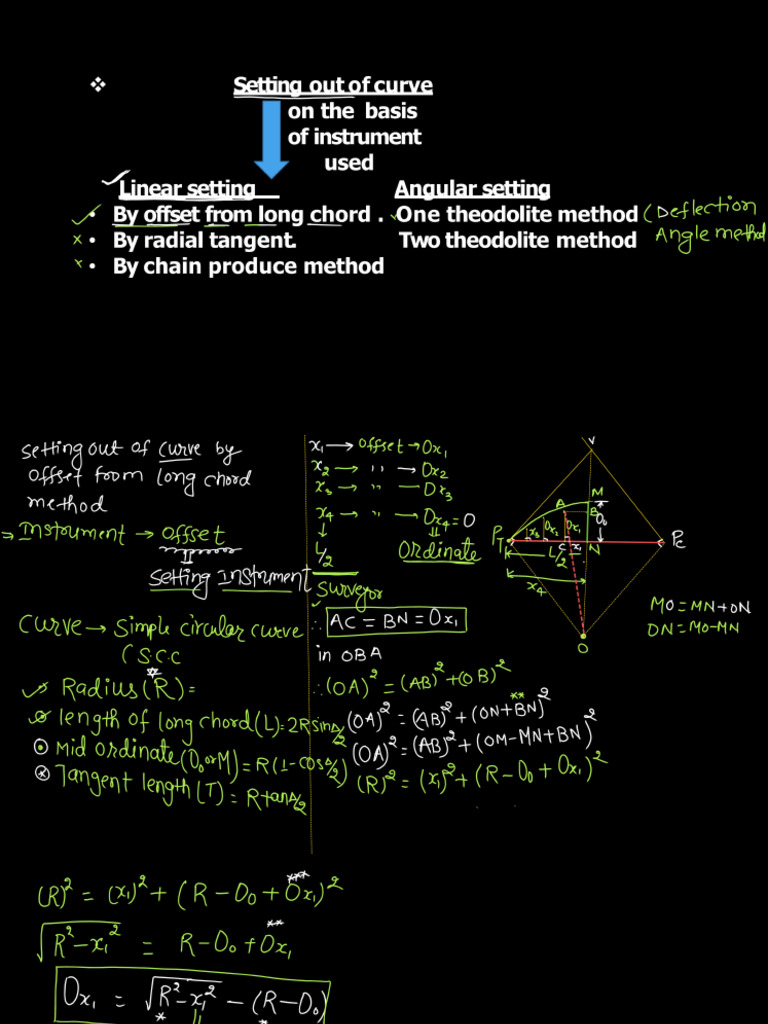 ❖ Setting out of curve
on the basis
of instrument
used
Linear setting
• By offset from long chord .
• By radial tangent.
• By chain produce method
Angular setting
One theodolite method (Deflection
Two theodolite method Angle method
Setting out of curve by
offset from long chord
method
⇒ Instrument → offset
Setting Instrument
Curve → Simple circular curve
(S.C.C
Radius (R) =
length of long chord (L) = 2R sin Δ/2
Mid ordinate (O₀ or M) = R(1-cos Δ/2)
Tangent length (T) = R tan Δ/2
x₁ → offset → Ox₁
x₂ → " → Ox₂
x₃ → " → Ox₃
x₄ → " → Ox₄ = 0
L/2
Ordinate
Surveyor
∴ AC = BN = Ox₁
in OBA
∴ (OA)² = (AB)² + (OB)²
(OA)² = (AB)² + (ON + BN)²
(OA)² = (AB)² + (OM - MN + BN)²
(R)² = (x₁)² + (R - O₀ + Ox₁)²
V
M
A
B
O₀
Ox₃
Ox₂
Ox₁
PT
PC
C
x₁
N
L/2
x₄
O
MO = MN + ON
ON = MO - MN
(R)² = (x₁)² + (R - O₀ + Ox₁)²
√R² - x₁² = R - O₀ + Ox₁
Ox₁ = √R² - x₁² - (R - O₀)